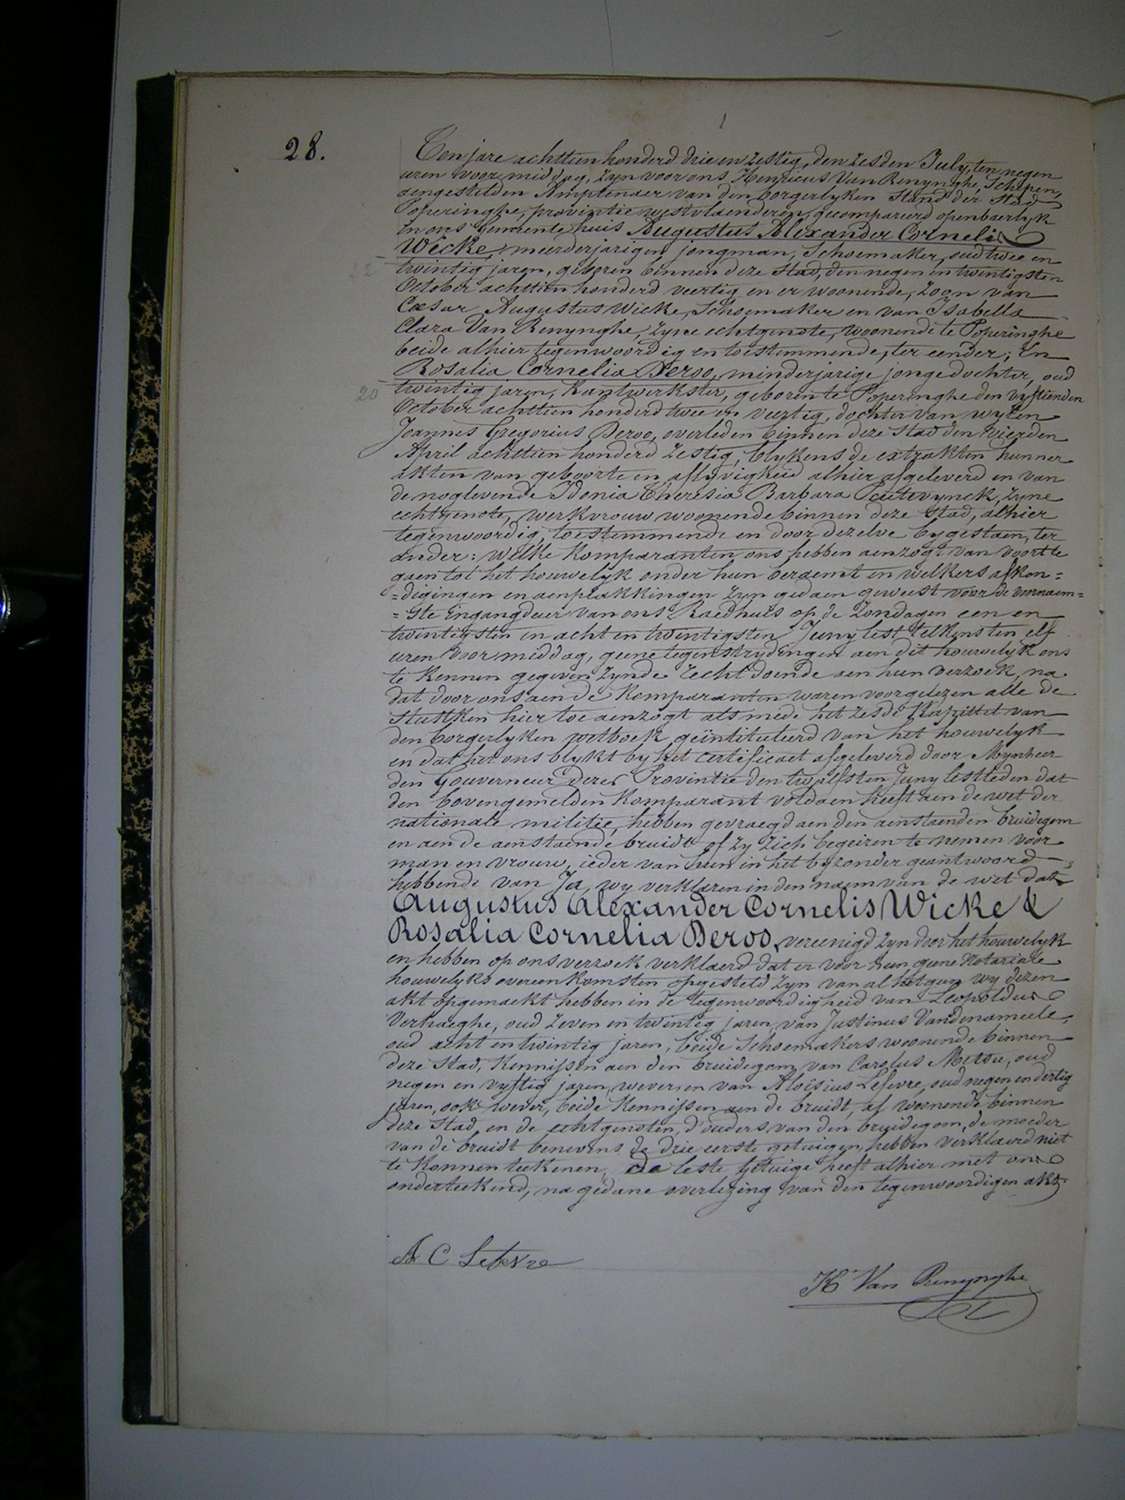 28.
Ten jare achttien honderd drie en zestig, den zesden July, ten negen
uren voor middag, zyn voor ons Henricus Van Renynghe, Schepen,
aengestelden Amptenaer van den borgerlyken Stand der Stad
Poperinghe, provintie westvlaenderen, gecompareerd openbaerlyk
in ons gemeente huis Augustus Alexander Cornelis
Wicke, meerderjarigen jongman, Schoemaker, oud twee en
22 twintig jaren, geboren binnen deze Stad, den negen en twintigsten
October achttien honderd veertig en er woonende, zoon van
Cæsar Augustus Wicke, Schoemaker en van Isabella
Clara Van Renynghe, zyne echtgenote, woonende te Poperinghe
beide alhier tegenwoordig en toestemmende, ter eender; En
Rosalia Cornelia Deroo, minderjarige jongedochter, oud
20 twintig jaren, Kantwerkster, geboren te Poperinghe den vyftienden
October achttien honderd twee en veertig, dochter van wylen
Joannes Gregorius Deroo, overleden binnen deze Stad den vierden
April achttien honderd zestig, blykens de extrakten hunner
akten van geboorte en aflyvigheid alhier afgeleverd en van
de noglevende Idonia Theresia Barbara zyne
echtgenote, werkvrouw woonende binnen deze Stad, alhier
tegenwoordig, toestemmende en door dezelve bygestaen, ter
ander: Welke Komparanten ons hebben aenzogt van voortte
gaen tot het houwelyk onder hun beraemt en welkers afkon=
=digingen en aenplakkingen zyn gedaen geweest voor de voornaem=
=ste Engangdeur van ons Raedhuis op de Zondagen een en
twintigsten en acht en twintigsten Juny lest telkens ten elf
uren voor middag, geene tegenstrydingen aen dit houwelyk ons
te kennen gegeven zynde Recht doende aen hun verzoek, na
dat door ons aen de Komparanten waren voorgelezen alle de
Stukken hier toe aenzogt als mede het zesde Kapittel van
den borgerlyken wetboek geïntituleerd van het houwelyk
en dat het ons blykt by het certificaet afgeleverd door Mynheer
den Gouverneur dezer Provintie den twelfsten Juny lestleden dat
den bovengemelden Komparant voldaen heeft aen de wet der
nationale militie, hebben gevraegd aen den aenstaenden bruidegom
en aen de aenstaende bruidt of zy zich begeiren te nemen voor
man en vrouw, ieder van hun in het byzonder geantwoord
hebbende van Ja, wy verklaren in den naem van de wet dat
Augustus Alexander Cornelis Wicke &
Rosalia Cornelia Deroo, vereenigd zyn door het houwelyk
en hebben op ons verzoek verklaerd dat er voor hun geene Notariale
houwelyks overeenkomsten opgesteld zyn van al het gun wy dezen
akt opgemaekt hebben in de tegenwoordigheid van Leopoldus
Verhaeghe, oud zeven en twintig jaren, van Justinus Vandenameele,
oud acht en twintig jaren, beide Schoemakers woonende binnen
deze Stad, Kennissen aen den bruidegom, van Carolus oud
negen en vyftig jaren, wever, en van Aloisius Lefevre, oud negen en dertig
jaren, ook wever, beide Kennissen aen de bruidt, al woonende binnen
deze Stad, en de echtgenoten, d'ouders van den bruidegom, de moeder
van de bruidt benevens de drie eerste getuigen, hebben verklaerd niet
te konnen teekenen, de leste Getuige heeft alhier met ons
onderteekend, na gedane overlezing van den tegenwoordigen akt.
A C Lefevre
H Van Renynghe